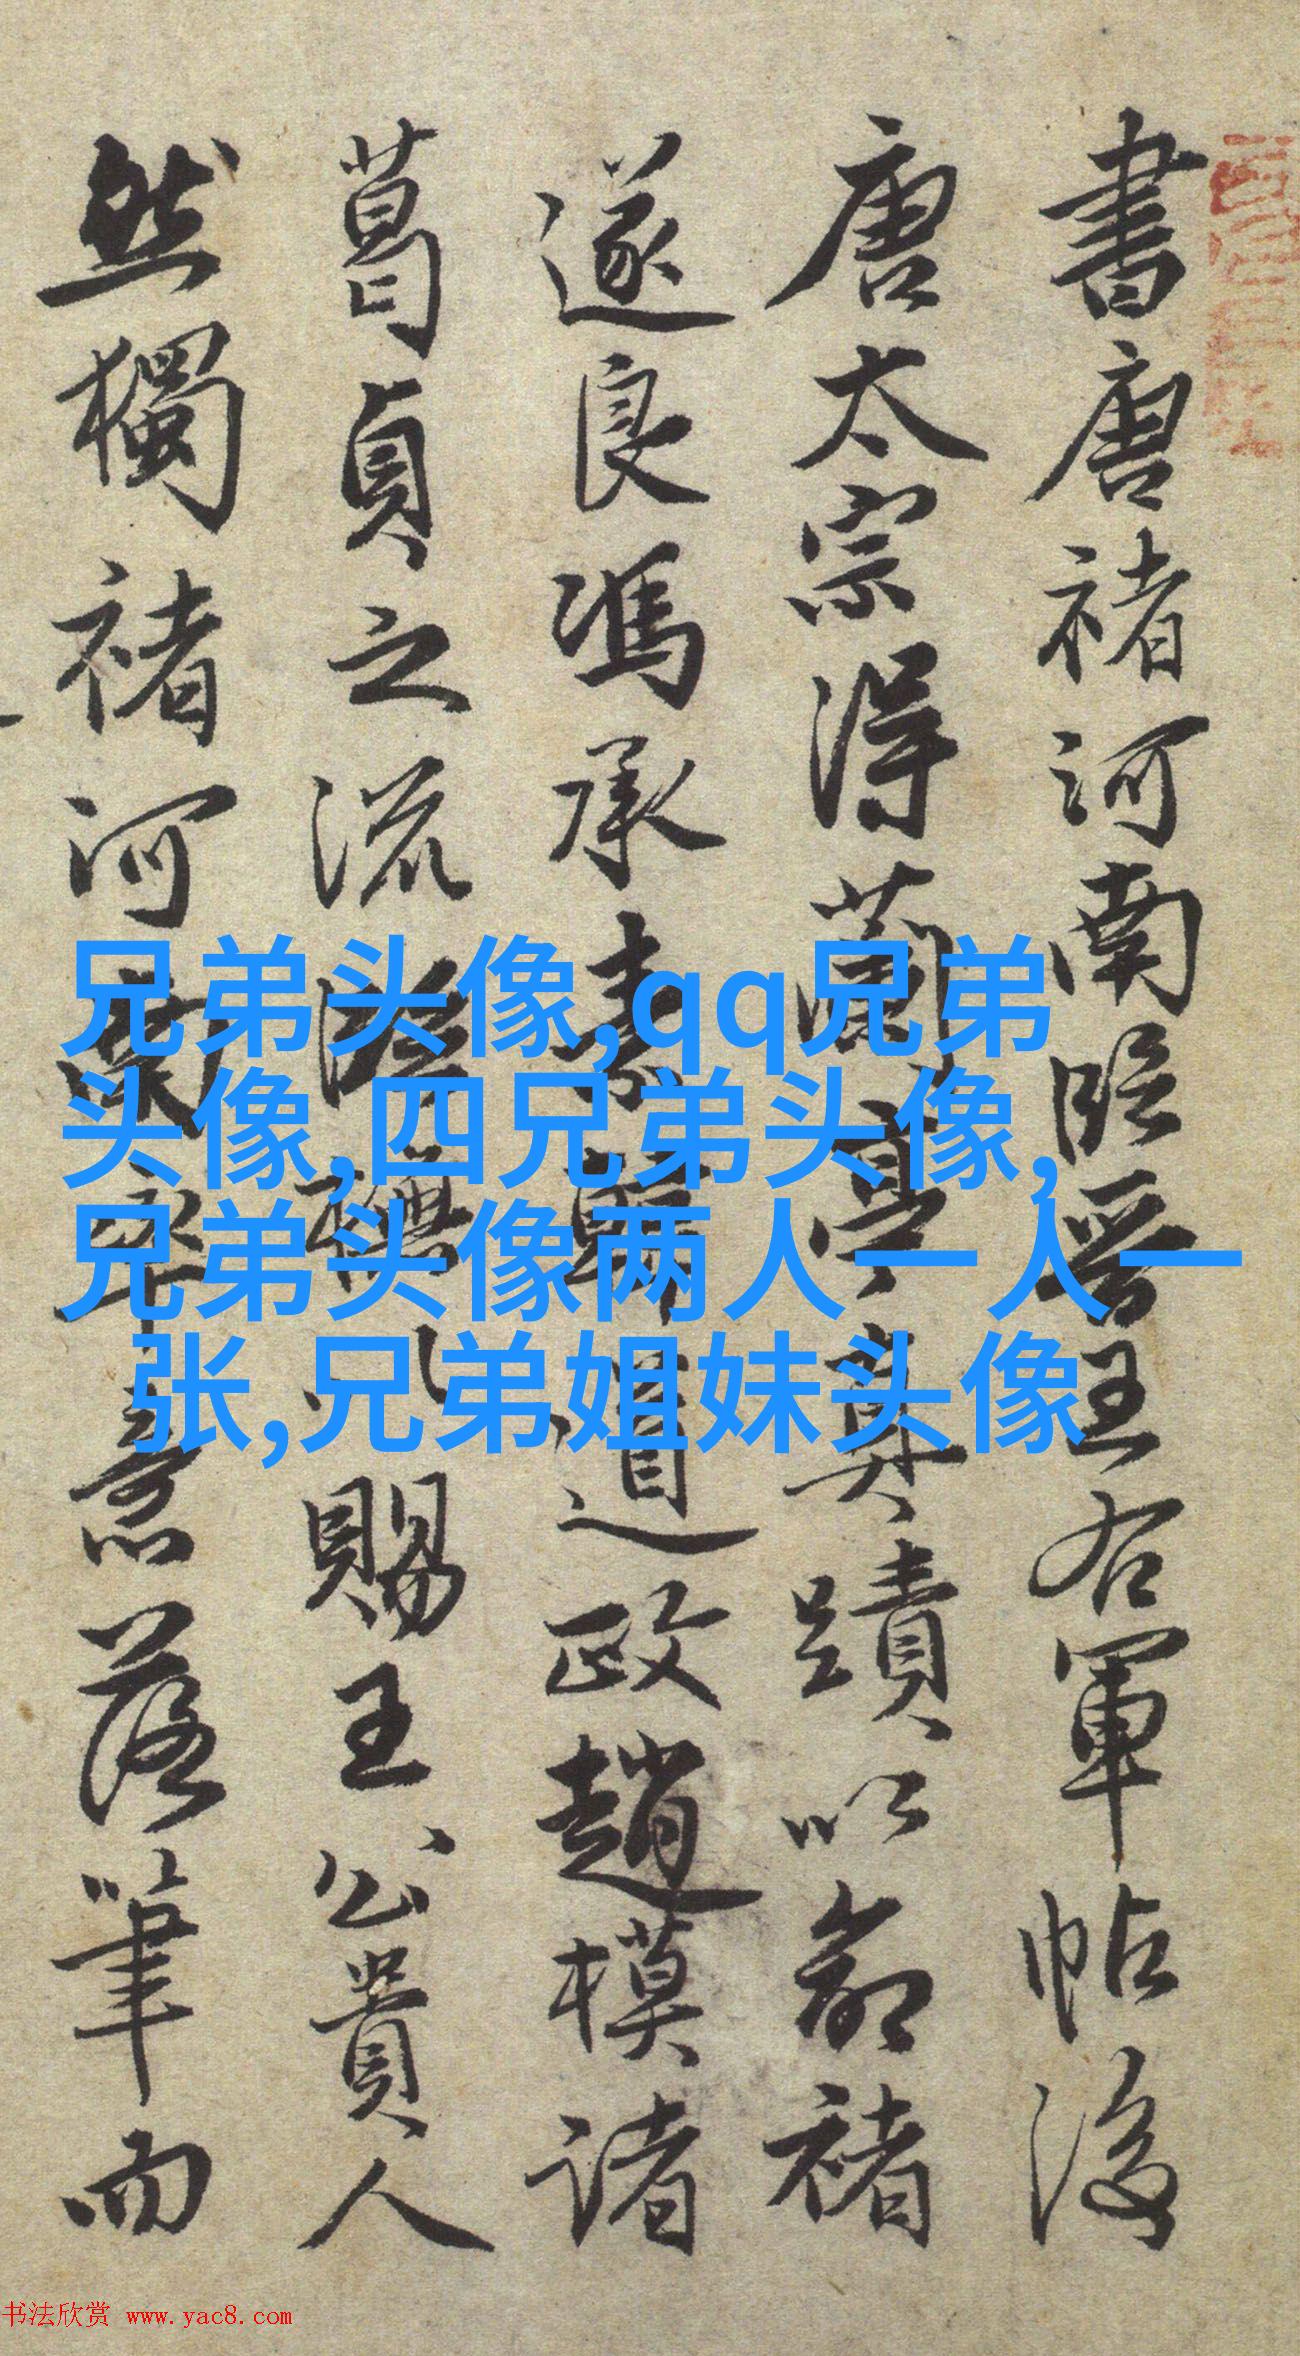 書唐褚河南臨晉王右軍帖後
唐太宗得蘭亭真蹟以命褚
遂良馮承素韓道政趙模諸
葛貞之流賜王公貴人
然獨褚河南率意落筆而
兄弟头像,qq兄弟
头像,四兄弟头像,
兄弟头像两人一人一
张,兄弟姐妹头像
书法欣赏 www.yac8.com